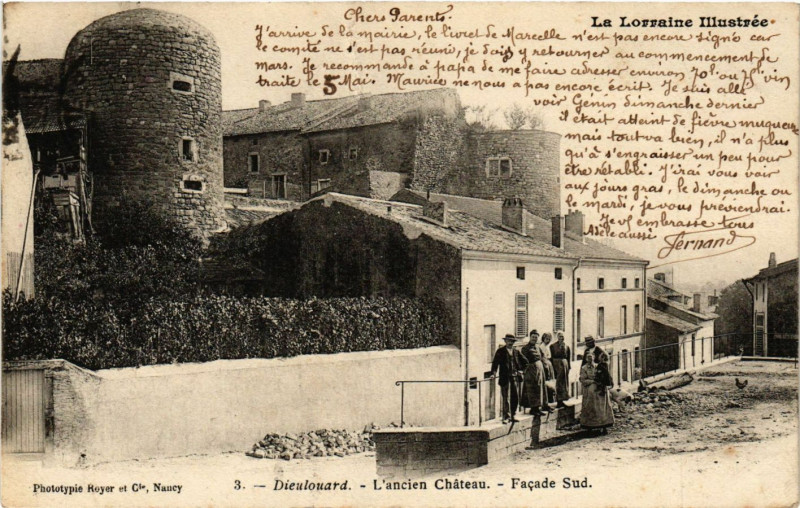 La Lorraine Illustrée.
Chers Parents.
J'arrive de la mairie, le livret de Marcelle n'est pas encore signé car
le comité ne s'est pas réuni, je dois y retourner au commencement de
mars. Je recommande à papa de me faire adresser environ 70l ou 75l vin
traite le 5 Mai. Maurice ne nous a pas encore écrit. Je suis allé
voir Genin dimanche dernier
il était atteint de fièvre muqueuse
mais tout va bien, il n'a plus
qu'à s'engraisser un peu pour
être rétabli. J'irai vous voir
aux jours gras, le dimanche ou
le mardi, je vous préviendrai.
Je vs embrasse tous
Adèle aussi
Fernand
Phototypie Royer et Cie, Nancy
3. — Dieulouard. - L'ancien Château. - Façade Sud.